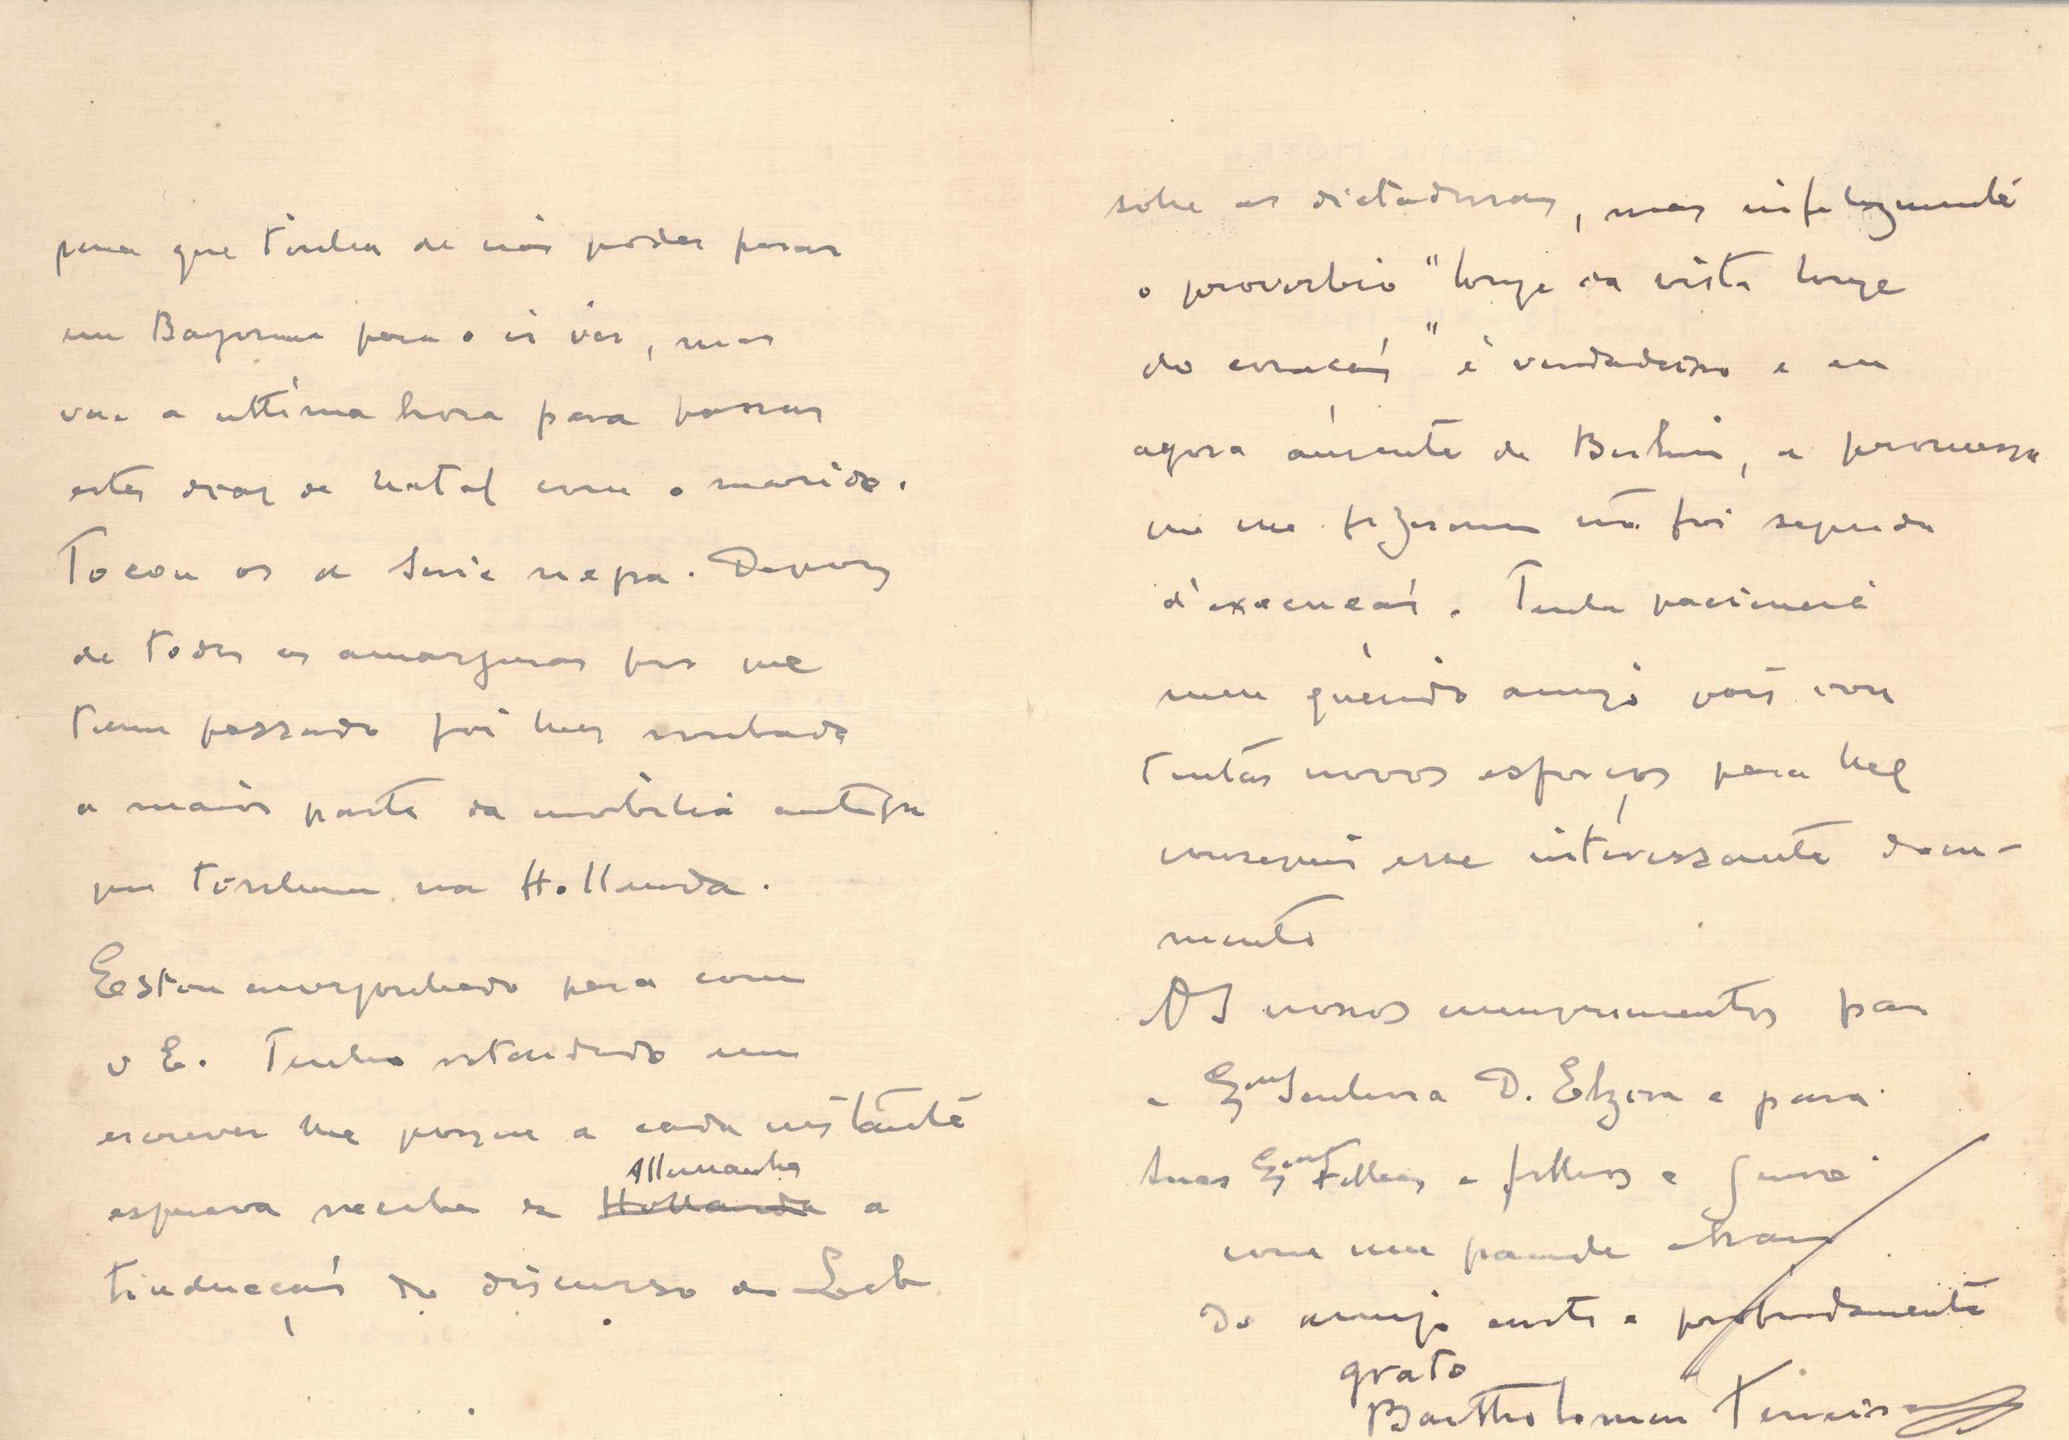 pena que tinha de não poder parar
em Bayonne para o ir ver, mas
vae a ultima hora para passar
estes dias de Natal com o marido.
Tocou os a serie negra. Depois
de todas as amarguras por que
tem passado foi lhes roubada
a maior parte da mobilia antiga
que tinham na Hollanda.
Estou envergonhado para com
v E. Tenho retardado em
escrever lhe porque a cada instante
Allemanha
esperava receber da Hollanda a
traducção do discurso do Loeb
sobre as dictaduras, mas infelizmente
o proverbio "longe da vista longe
do coração" é verdadeiro e eu
agora ausente de Berlim, a promessa
que me fizeram não foi seguida
d'execução. Tenha paciencia
meu querido amigo pois vou
tentar novos esforços para lhe
conseguir esse interessante docu-
mento
Os nossos cumprimentos para
a Exma Senhora D. Elzira e para
suas Exmas Filhas e filhos e Genro
com um grande abraço
Do amigo certo e profundamente
grato
Bartholomeu Ferreira